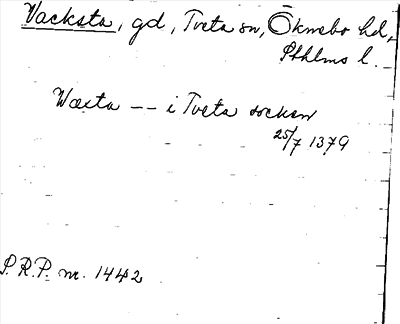 Vacksta, gd, Tveta sn, Öknebo hd,
Sthlms l.
Wæsta -- i Tveta socken
25/7 1379
S.R.P. nr. 1442